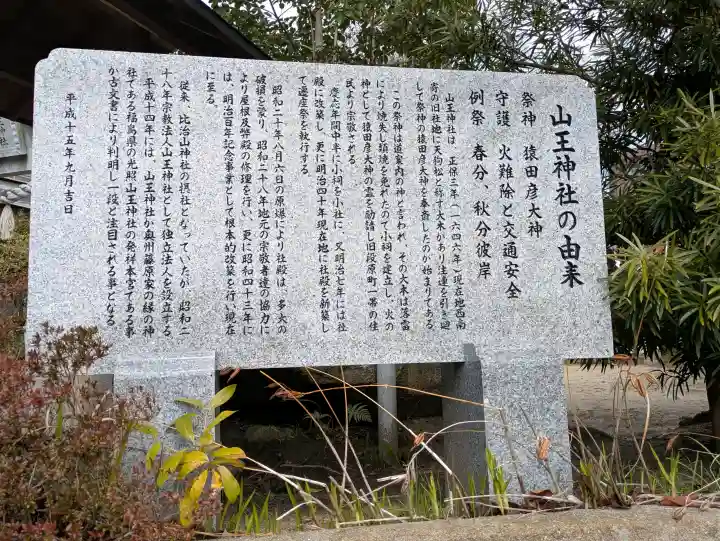 山王神社の由来
祭神 猿田彦大神
守護 火難除と交通安全
例祭 春分、秋分彼岸
山王神社は、正保三年(一六四六年)現在地西南
寄の旧社地に天狗松と称す大木があり注連を引き廻
して祭神の猿田彦大神を奉斎したのが始まりである
この祭神は道案内の神と言われ、その大木は落雷
により焼失し類焼を免れたので小祠を建立し、火の
神として猿田彦大神の霊を勧請し旧段原町一帯の住
民より宗敬される。
慶応年間中半に小祠を小社に、又明治七年には社
殿に改築し、更に明治四十年現在地に社殿を新築し
て遷座祭を執行する。
昭和二十年八月六日の原爆により社殿は、多大の
破損を蒙り、昭和二十八年地元の宗敬者達の協力に
より屋根及幣殿の修理を行い、更に昭和四十三年に
は、明治百年記念事業として根本的改築を行い現在
に至る。
従来、比治山神社の摂社となっていたが、昭和二
十八年宗教法人山王神社として独立法人を設立する
平成十四年には、山王神社が奥州藤原家の縁の神
社である福島県の光照山王神社の発祥本宮である事
が古文書により判明し一段と注目される事となる
平成十五年九月吉日